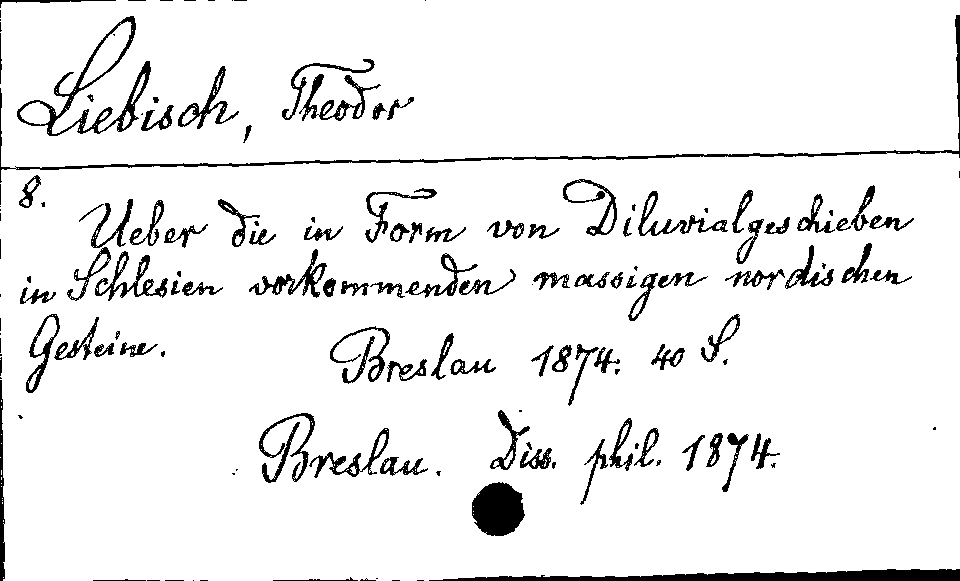 Liebisch, Theodor
8.
Ueber die in Form von Diluvialgeschieben
in Schlesien vorkommenden massigen nordischen
Gesteine.
Breslau 1874. 40 S.
Breslau. Diss. phil. 1874.